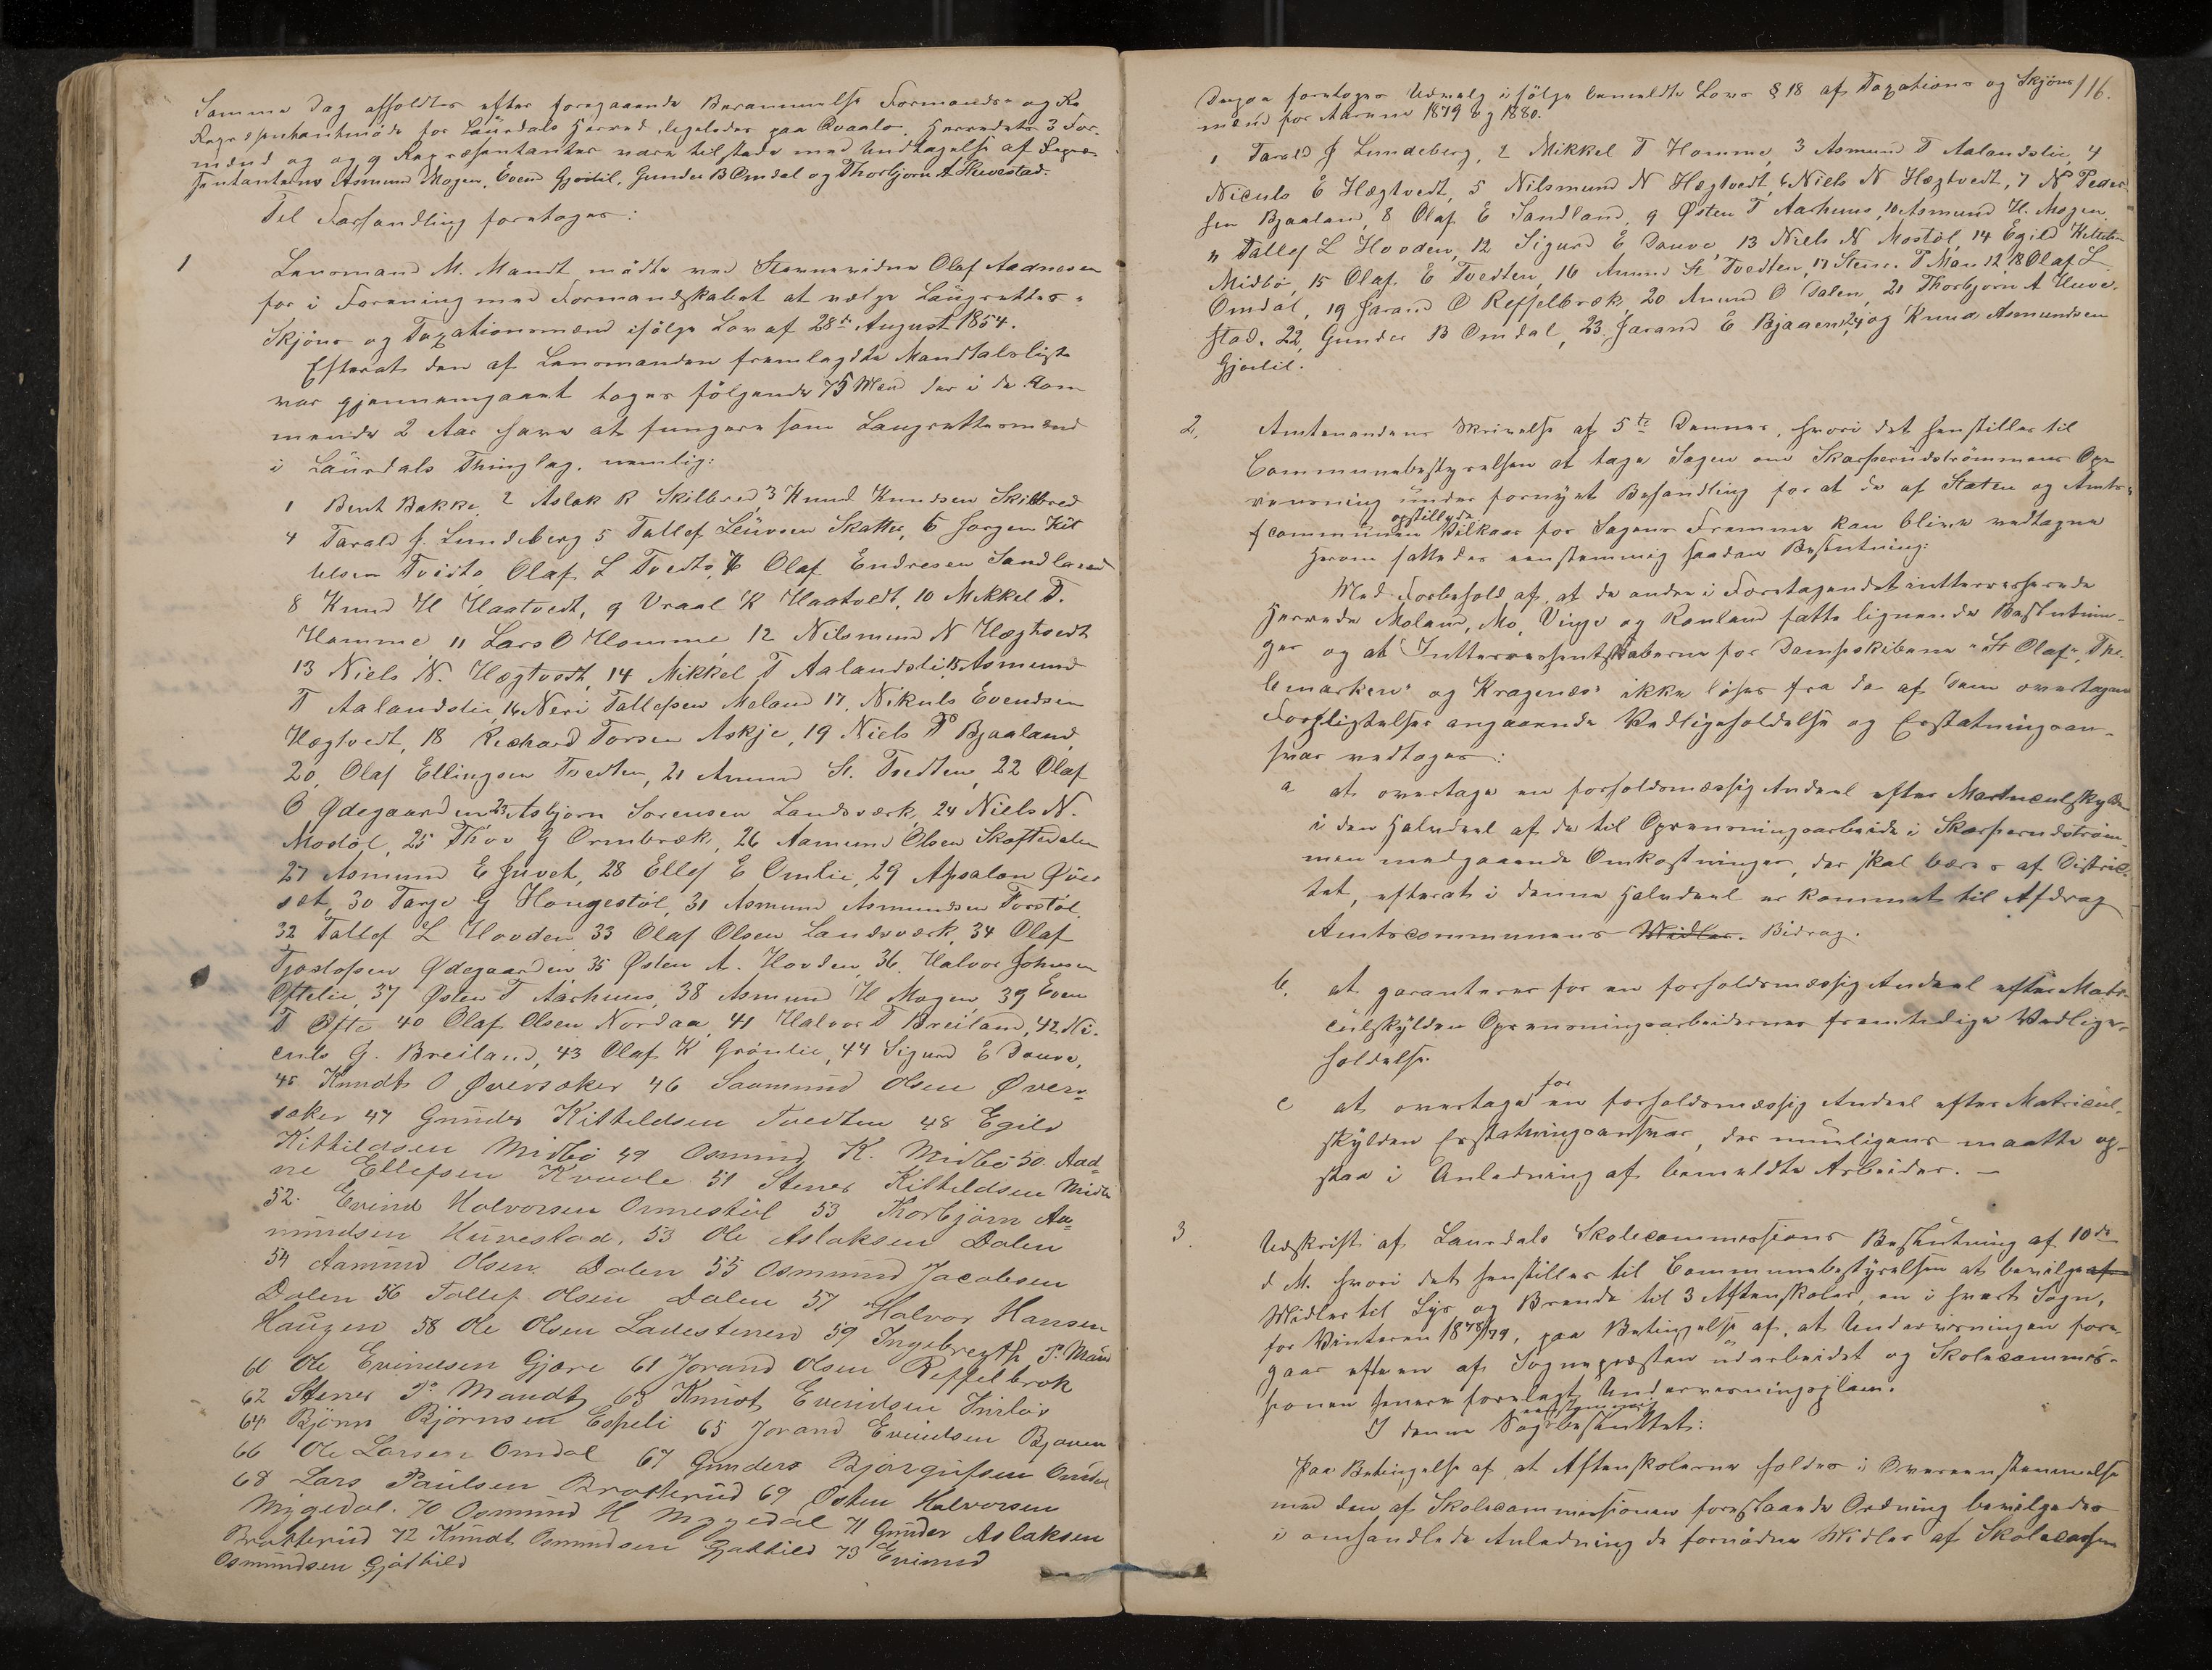 Samme Dag afholdtes efter foregaaende Berammelse Formands- og Re
Repræsentantmöde for Laurdals Herred, ligeledes paa Qvaale. Herredets 3 For-
mænd og og 9 Repræsentanter vare tilstede med Undtagelse af Repræ-
sentanterne Asmund Mogen, Evend Gjødil, Gunder B Omdal og Thorbjørn A Huvestad.
Til Forhandling foretoges:
1 Lensmand M. Mandt mødte med Stevnevidne Olaf Aadnesen
for i Forening med Formandskabet at vælge Laugrettes-
Skjöns og Taxationsmænd ifölge Lov af 28de August 1854.
Efterat den af Lensmanden fremlagdte Mandtalsliste
var gjennemgaaet toges fölgende 75 Mænd der i de kom
mende 2 Aar have at fungere som Laugrettesmænd
i Laurdals Thinglag, nemlig:
1 Bent Bakke, 2 Aslak R Skilbred, 3 Knud Knudsen Skilbred
4 Tarald J. Lundeberg 5 Tallef Leuvsen Skatter, 6 Jørgen Kit
telsen Tvedto, Olaf L Tvedto, 7 Olaf Endresen Sandland
8 Knud H Haatvedt, 9 Vraal K Haatvedt, 10 Mikkel T.
Homme, 11 Lars O Homme 12 Nilsmund N Hægtvedt
13 Niels N. Hægtvedt, 14 Mikkel T Aalandslid, 15 Asmund
T Aalandslie, 16 Neri Tallefsen Meland 17, Nikuls Evendsen
Hægtvedt, 18 Richard Torsen Askje, 19 Niels P Bjaaland,
20, Olaf Ellingsen Tvedten, 21 Amund St. Tvedten, 22 Olaf
O Ødegaarden 23 Asbjörn Sørensen Landsværk, 24 Niels N.
Mostöl, 25 Thov G Ormbræk, 26 Aamund Olsen Skaftedalen
27 Asmund E Juvet, 28 Ellef E Omlie, 29 Apsalon Øver
sæt, 30 Targe G Hougestöl, 31 Asmund Asmundsen Torstöl.
32 Tallef L Hovden 33 Olaf Olsen Landsværk, 34 Olaf
Tjostofsen Ødegaarden 35 Østen A. Hovden, 36. Halvor Johnsen
Oftelie, 37 Østen T Aarhuus, 38 Asmund H Mogen, 39 Even
T Ofte 40 Olaf Olsen Nordaa, 41 Halvor T Breiland, 42 Ni-
culs G. Breiland, 43 Olaf K Grönlie, 44 Sigurd E Dauve,
45 Knudt O Qversaker 46 Saamund Olsen Øver-
saker 47 Gunder Kittildsen Tvedten 48 Egild
Kittildsen Midbö 49 Osmund K. Midbö 50 Aad-
ne Ellefsen Kvaale 51 Stener Kittildsen Midbö
52. Evind Halvorsen Ormestöl 53 Torbjörn Aa-
mundsen Huvestad, 53 Ole Aslaksen Dalen
54 Aamund Olsen. Dalen 55 Osmund Jacobsen
Dalen 56 Tallef Olsen Dalen 57 Halvor Hansen
Haugen 58 Ole Olsen Ladestenen 59 Ingebregth P. Mandt
60 Ole Evindsen Gjare 61 Jorand Olsen Reffelbrok
62 Stener P. Mandt 63 Knudt Evindsen Jurlös
64 Björn Björnsen Espeli 65 Jorand Evindsen Bjaaen
66 Ole Larsen Omdal 67 Gunder Bjørgufsen Omdal
68 Lars Paulsen Bratterud 69 Østen Halvorsen
Mygedal. 70 Osmund H Mygedal 71 Gunder Aslaksen
Bratterud 72 Knudt Osmundsen Gjøthild 73 Evind
Osmundsen Gjøthild
116.
Derpaa foretoges Udvalg ifölge bemeldte Lovs § 18 af Taxations og Skjöns
mænd for Aarene 1879 og 1880.
1 Tarald J Lundeberg, 2 Mikkel T Homme, 3 Asmund T Aalandslie, 4
Niculs E Hægtvedt, 5 Nilsmund N Hægtvedt, 6 Niels N Hægtvedt, 7 N Peder-
sen Bjaaland, 8 Olaf E Sandland, 9 Østen T Aarhuus, 10 Asmund H. Mogen,
11 Tallef L Hovden, 12 Sigurd E Dauve 13 Niels N Mostöl, 14 Egild Kittilsen
Midbö, 15 Olaf E Tvedten, 16 Amund St Tvedten, 17 Stener P Mandt, 18 Olaf L.
Omdal, 19 Jarand O Reffelbræk, 20 Amund O Dalen, 21 Thorbjørn A Huve-
stad, 22 Gunder B Omdal, 23 Jarand E Bjaaen, 24 og Knud Asmundsen
Gjødil.
2. Amtmandens Skrivelse af 5te Dennes, hvori det henstilles til
Communebestyrelsen at tage Sagen om Skarperudströmmens Op-
rensning under fornyet Behandling for at de af Staten og Amts-
communen opstillede Vilkaar for Sagens Fremme kan blive vedtagne
Herom fattedes eenstemmig saadan Beslutning:
Med Forbehold af, at de andre i Foretagendet intteresserede
Herreder Moland, Mo, Vinje og Rauland fatte lignende Beslutnin-
ger og at Intteressentskaberne for Dampskibene "St Olaf", "The-
lemarken" og Kragenæs" ikke löses fra de af dem overtagne
Forpligtelser angaaende Vedligeholdelse og Erstatningsan-
svar vedtoges:
a at overtage en forholdsmæssig Andeel efter Matriculskylden
i den Halvdeel af de til Oprensningsarbeide i Skarperudström-
men medgaaende Omkostninger, der skal bæres af Distric-
tet, efterat i denne Halvdeel er kommet til Afdrag
Amtscommunens Midler. Bidrag.
b. at garanteres for en forholdsmæssig Andeel efter Matri-
culskylden Oprensningsarbeidernes fremtidige Vedlige-
holdelse.
c at overtage for en forholdsmæssig Andeel efter Matricul-
skylden Erstatningsansvar, der muligens maatte op-
staa i Anledning af bemeldte Arbeider. —
3. Udskrift af Laurdals Skolecommissions Beslutning af 10de
d M. hvori det henstilles til Communebestyrelsen at bevilge af
Midler til Lys og Brænde til 3 Aftenskoler, en i hvert Sogn,
for Vinteren 1878/79, paa Betingelse af, at Undervisningen fore-
gaar efter en af Sognepræsten udarbeidet og Skolecommis-
sionen senere forelagt Undervisningsplan.
I denne Sag eenstemmig besluttet:
Paa Betingelse af at Aftenskolerne holdes i Overeenstemmelse
med den af Skolecommissionen foreslaaede Ordning bevilgedes
i omhandlede Anledning de fornödne Midler af Skolecassen